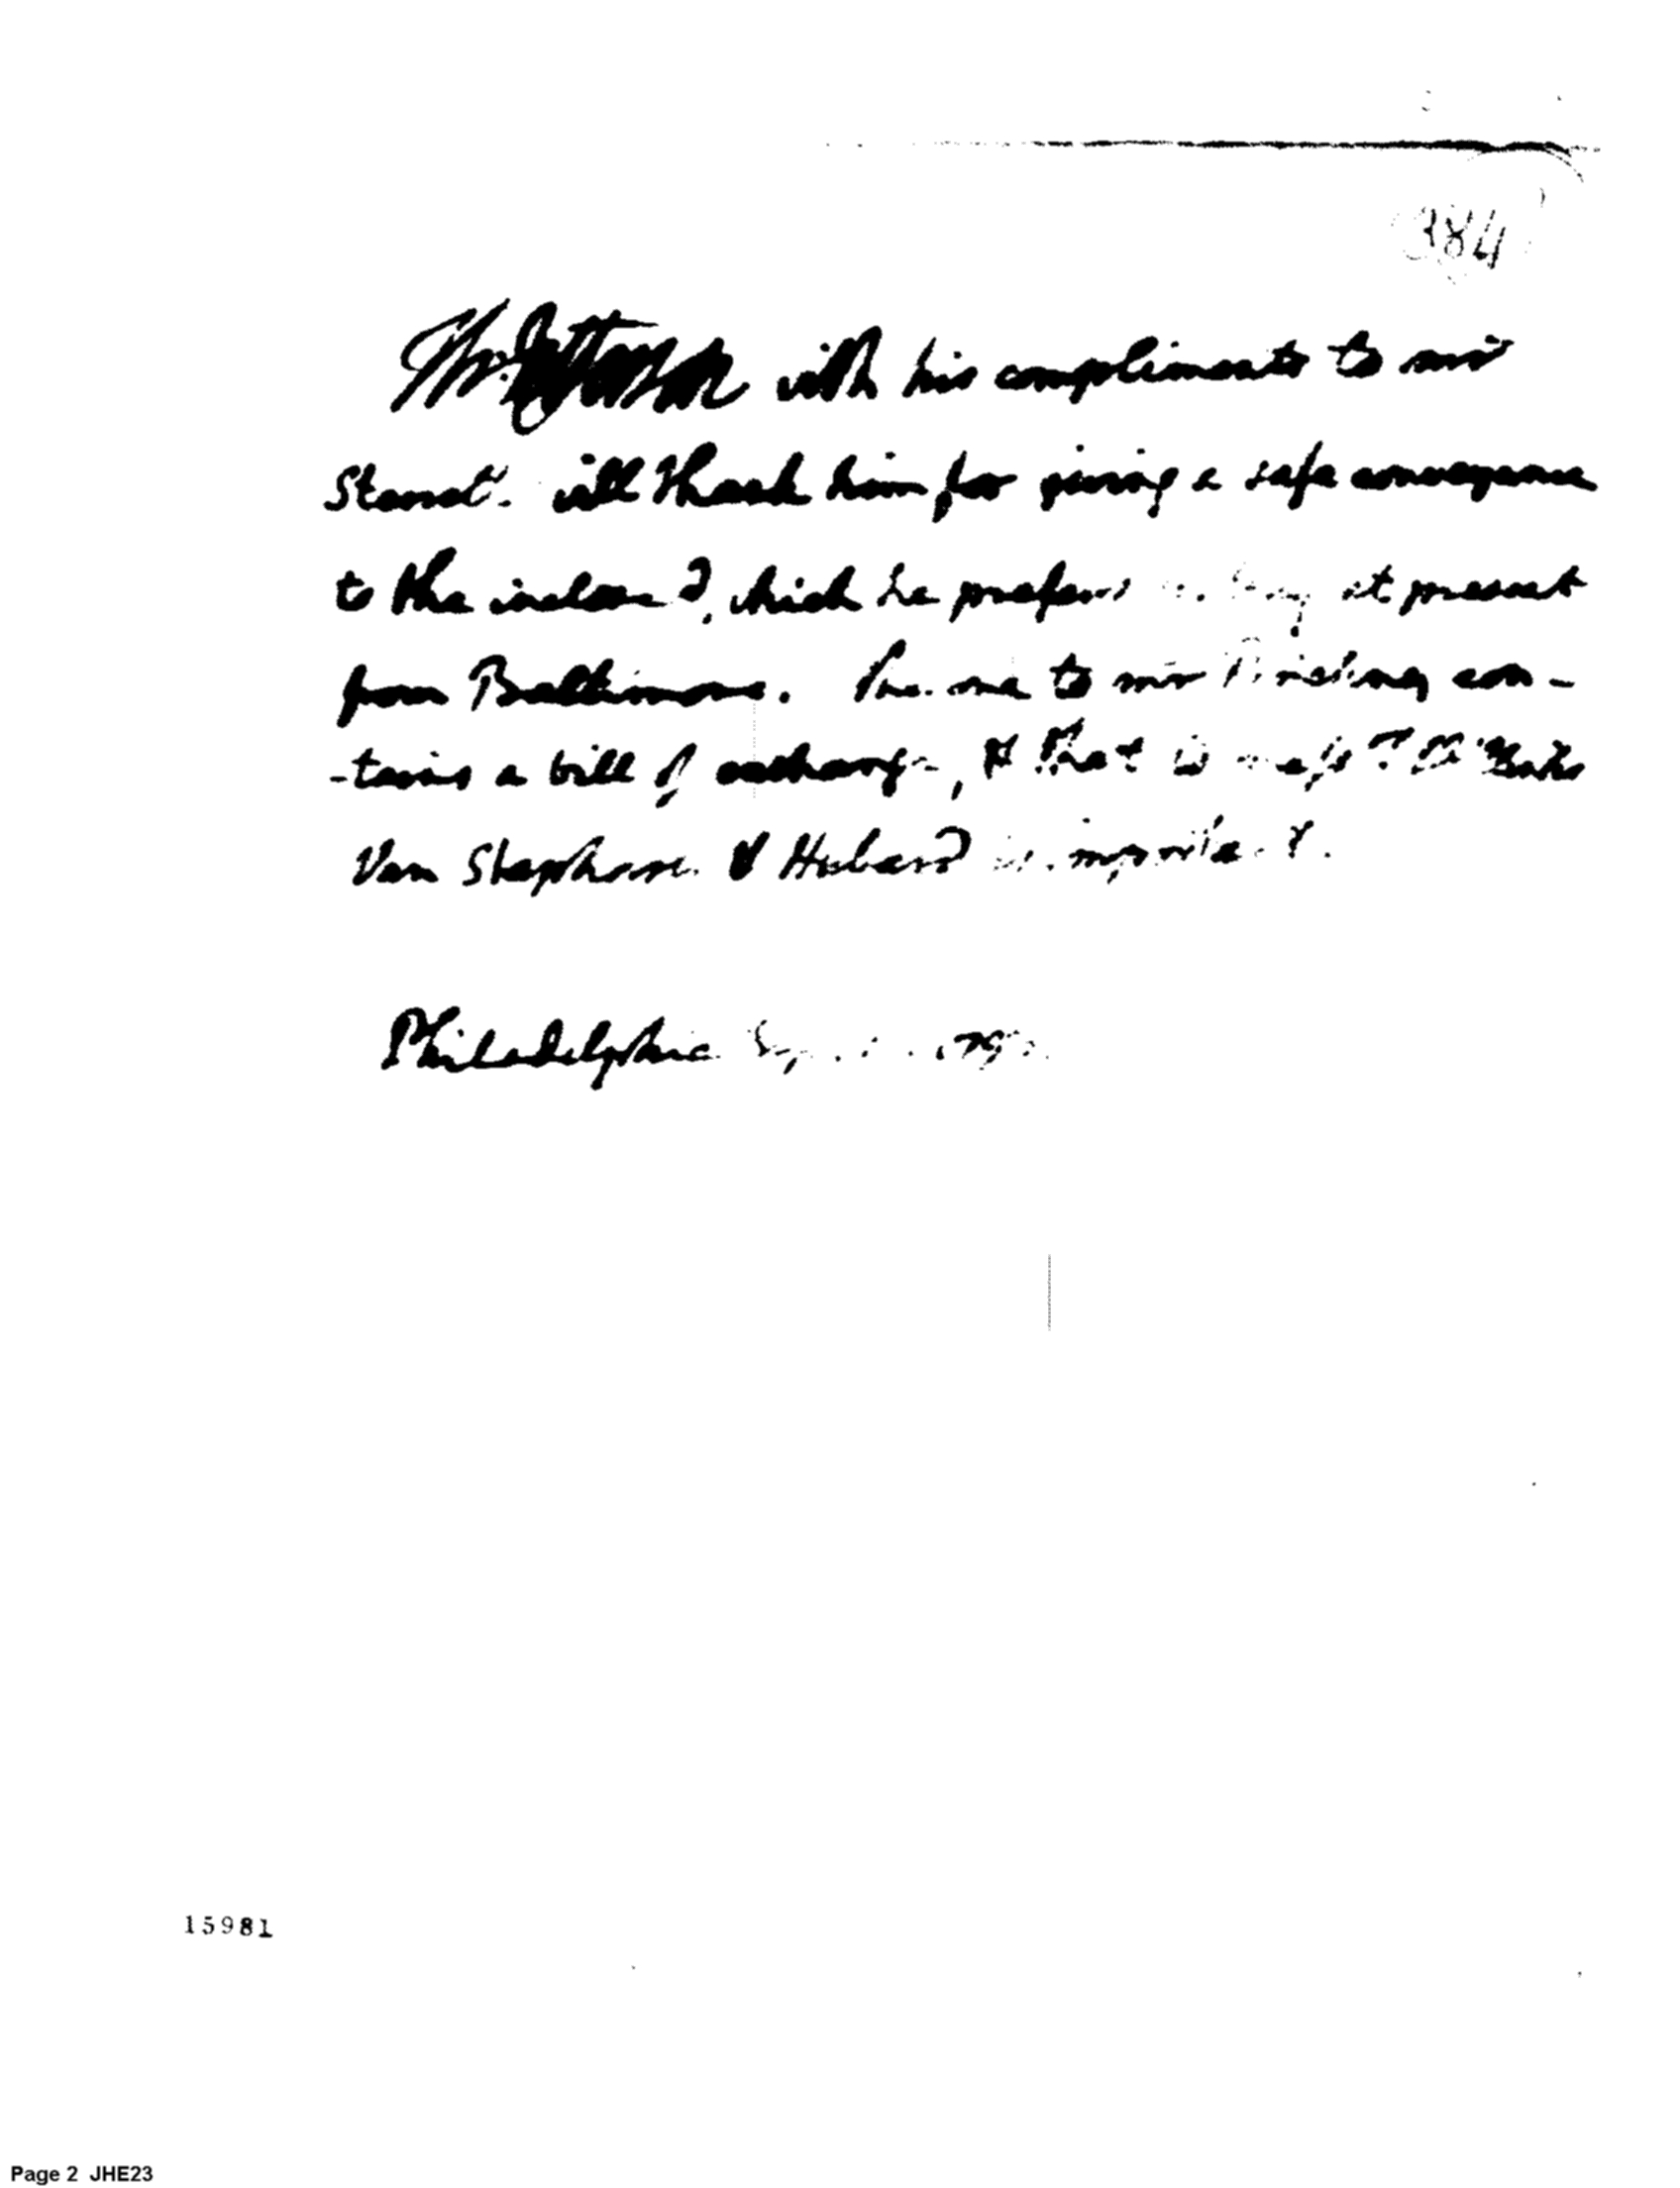 384
Th: Jefferson with his compliments to mr
Sterret will thank him for giving a safe conveyance
to the inclosed, which he prefers at present
from Baltimore. The one to mr Pinckney con-
-tains a bill of exchange, & that is
Van Staphorst & Hubard is important.
Philadelphia
15981
Page 2 JHE23